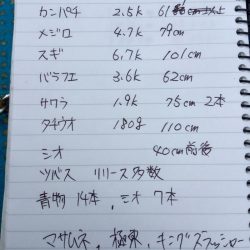 カンパチ 2.5k 61cm
メジロ 4.7k 79cm
スギ 6.7k 101cm
バラフエ 3.6k 62cm
サワラ 1.9k 75cm 2本
タチウオ 180g 110cm
シオ 40cm前後
ツバス リリース多数
青物 14本, シオ 7本
マサムネ, 極東, キングスラッシャー